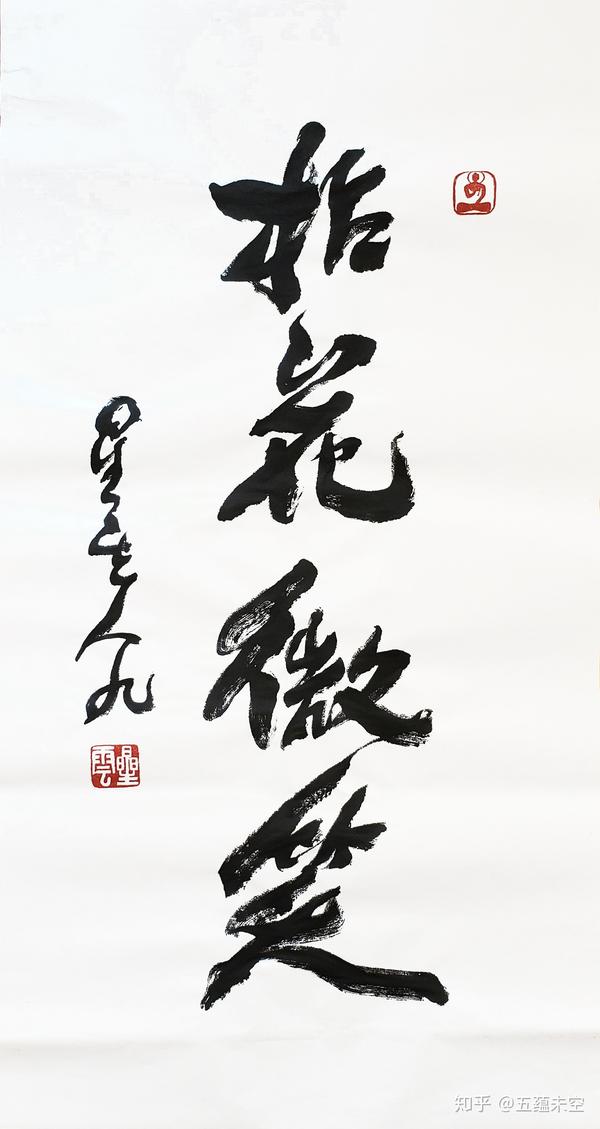 拈花微笑
星云
星雲
知乎 @五蕴未空